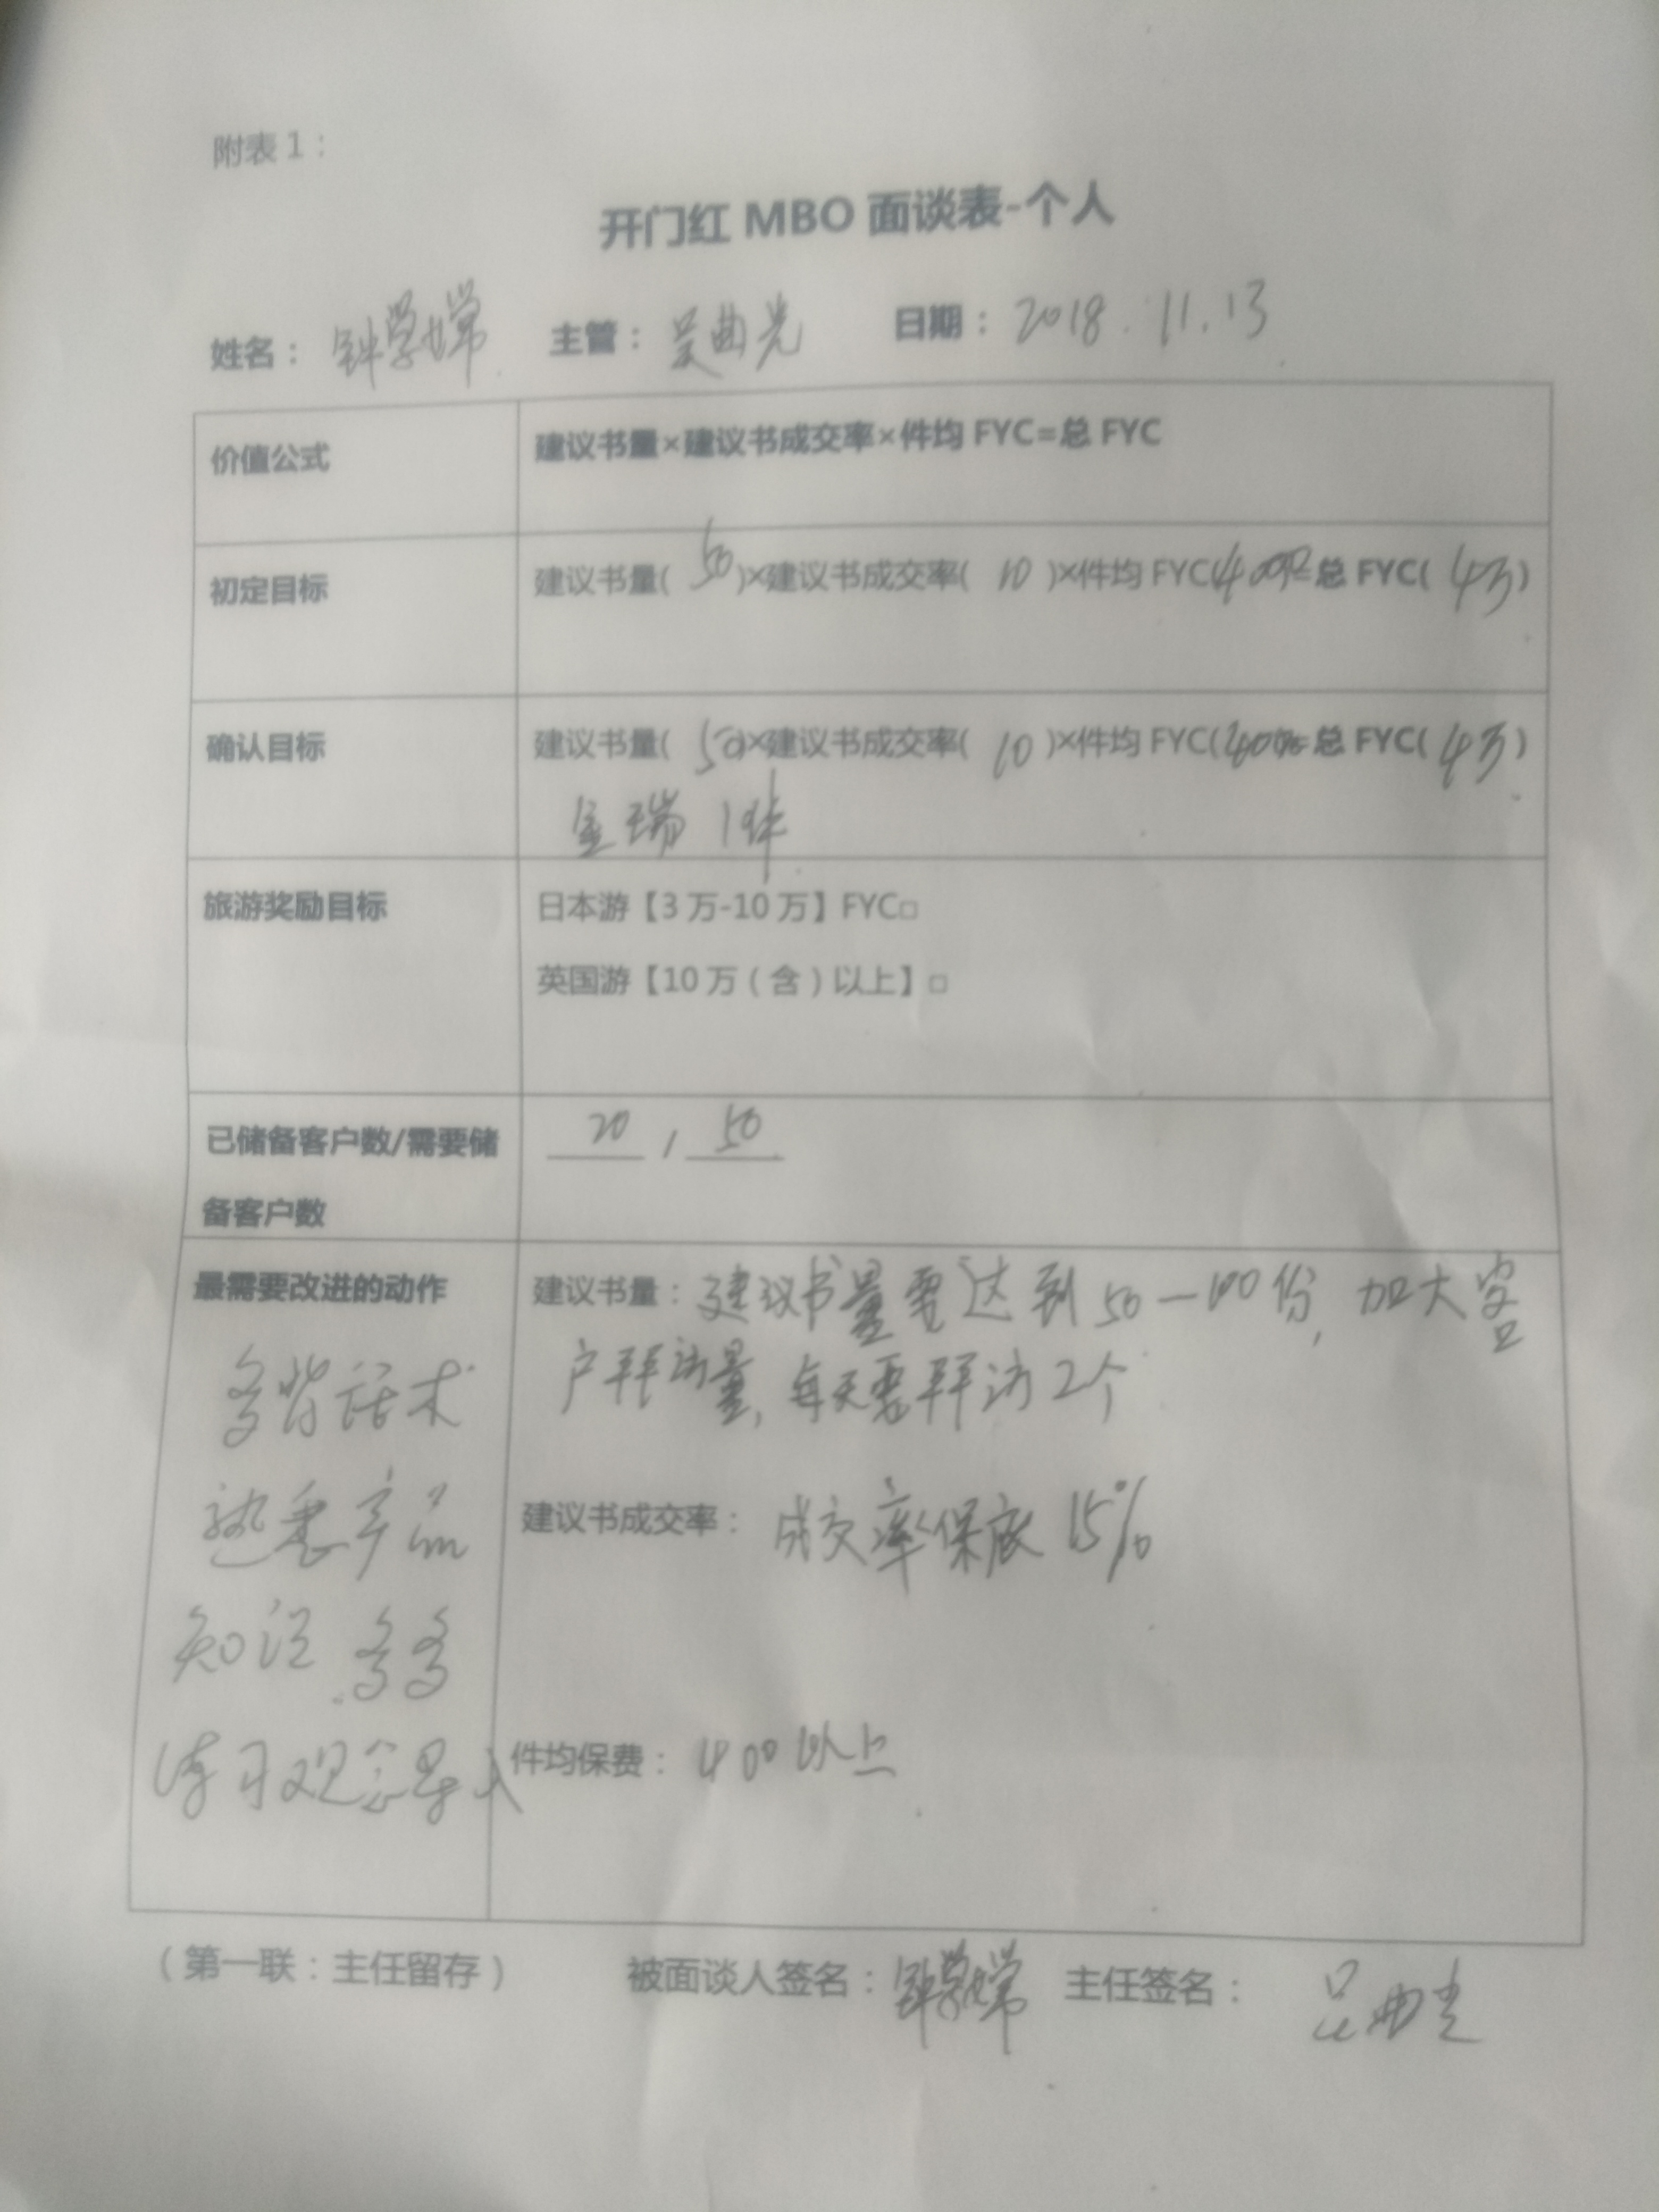 附表1：
开门红 MBO 面谈表-个人
姓名： 钟学嫦 主管： 吴曲光 日期： 2018.11.13
价值公式 建议书量×建议书成交率×件均 FYC=总 FYC
初定目标 建议书量( 50 )×建议书成交率( 10 )×件均 FYC( =总 FYC( 4万 )
确认目标 建议书量( 50 )×建议书成交率( 10 )×件均 FYC( 总 FYC( 4万 )
金瑞 1件
旅游奖励目标 日本游【3万-10万】FYC□
英国游【10万（含）以上】□
已储备客户数/需要储 20 / 50
备客户数
最需要改进的动作 建议书量：建议书量需达到50—100份，加大客
户拜访量，每天需拜访2个
多背话术
建议书成交率： 成交率保底 15%
熟悉产品
知识.多多
练习观念导入 件均保费： 4000以上
（第一联：主任留存） 被面谈人签名：钟学嫦 主任签名： 吴曲光